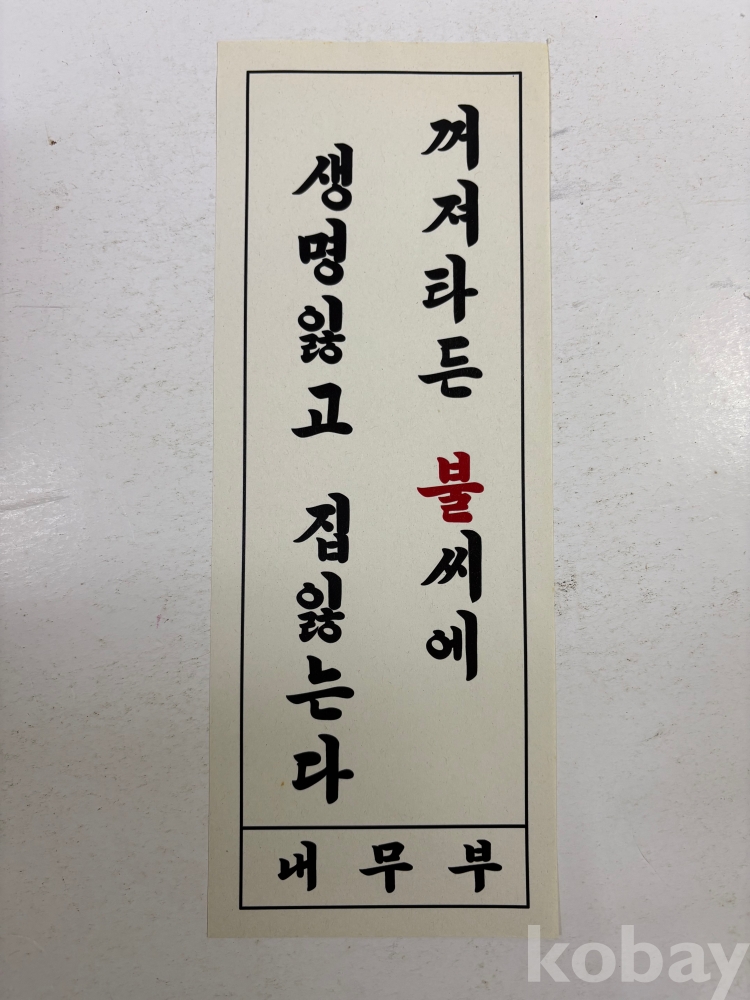 꺼져타든 불씨에
생명잃고 집잃는다
내무부
kobay